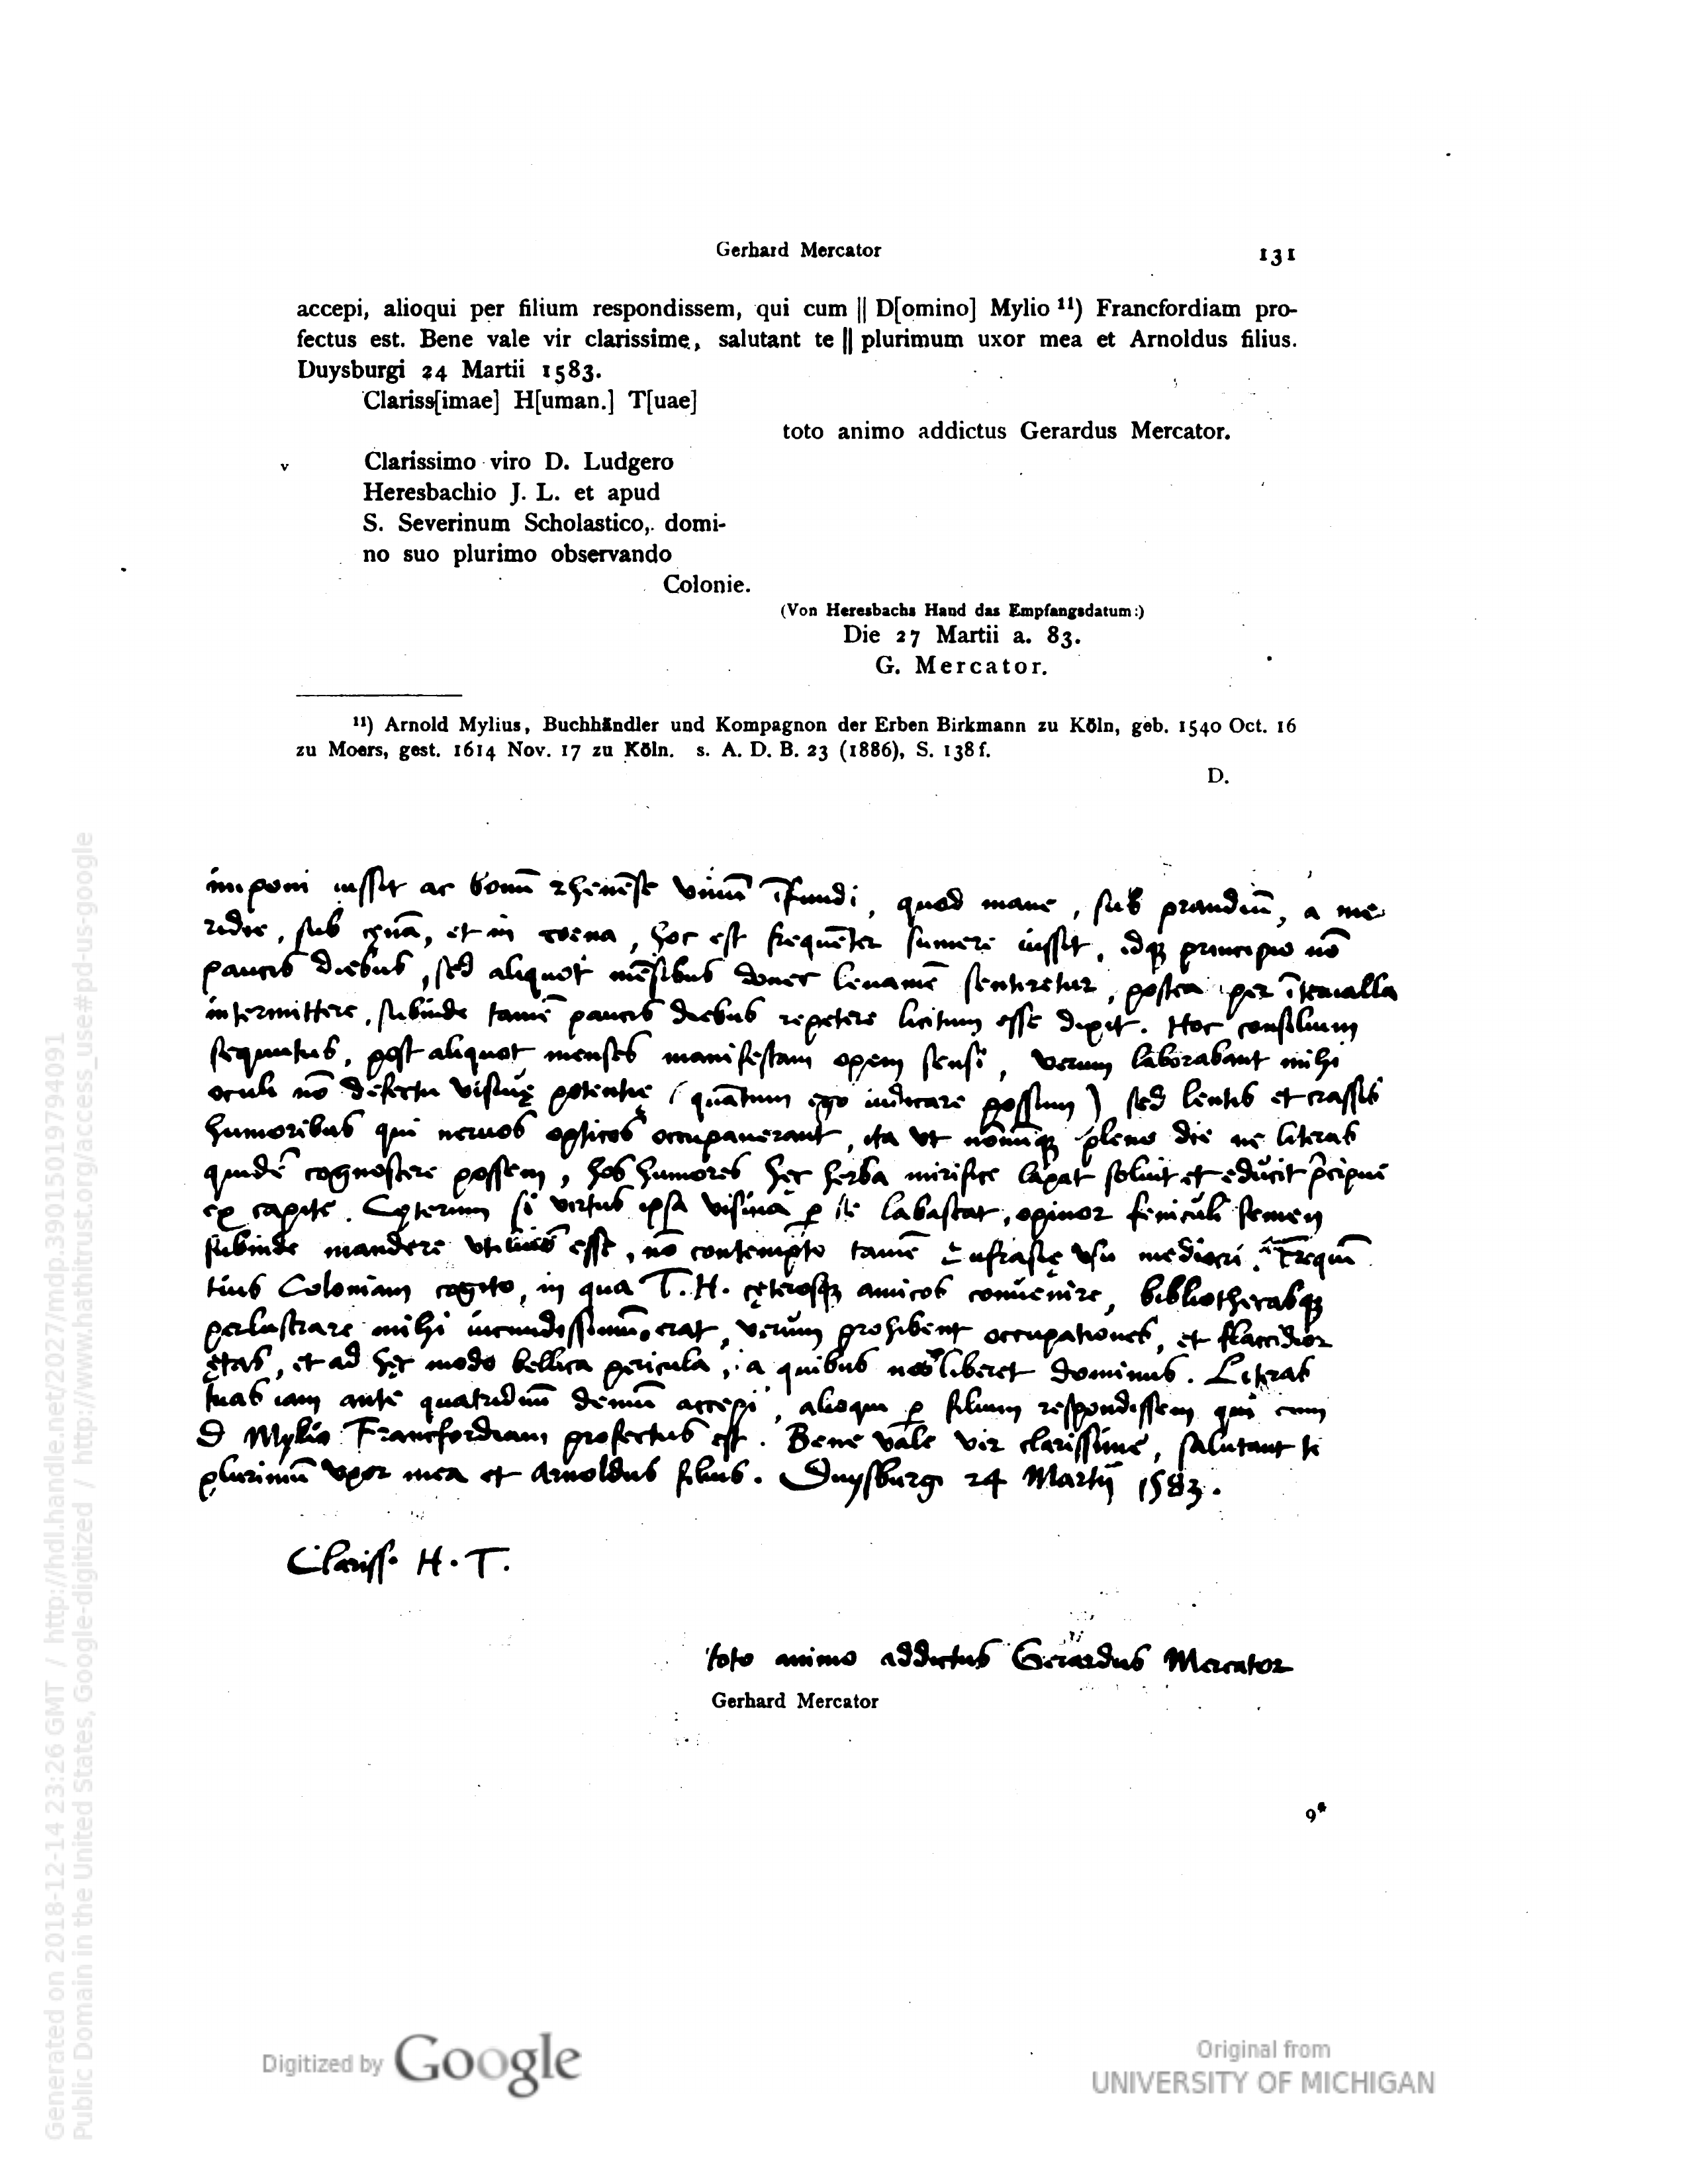 Gerhard Mercator 131
accepi, alioqui per filium respondissem, qui cum || D[omino] Mylio ¹¹) Francfordiam pro-
fectus est. Bene vale vir clarissime, salutant te || plurimum uxor mea et Arnoldus filius.
Duysburgi 24 Martii 1583.
Clariss[imae] H[uman.] T[uae]
toto animo addictus Gerardus Mercator.
v Clarissimo viro D. Ludgero
Heresbachio J. L. et apud
S. Severinum Scholastico, domi-
no suo plurimo observando
Colonie.
(Von Heresbachs Hand das Empfangsdatum:)
Die 27 Martii a. 83.
G. Mercator.
¹¹) Arnold Mylius, Buchhändler und Kompagnon der Erben Birkmann zu Köln, geb. 1540 Oct. 16
zu Moers, gest. 1614 Nov. 17 zu Köln. s. A. D. B. 23 (1886), S. 138 f.
D.
imponi iussit ac bonū rhenēse vinū īfundi, quod mane, sub prandiū, a me
ridie, sub cęnā, et in coena, hoc est frequēter sumere iussit, idqꝫ principio nō
paucis diebus, sed aliquot mēsibus donec leuamē sentiretur, postea per īterualla
intermittere, subinde tamē paucis diebus repetere licitum esse dixit. Hoc consilium
sequutus, post aliquot menses manifestam opem sensi, verum laborabant mihi
oculi nō defectu visiuę potentię (quātum ego iudicare possum) sed lentis et crassis
humoribus qui neruos opticos occupauerant, ita vt nōnūqꝫ pleno die ne literas
quidē cognoscere possem, hos humores hęc herba mirifice laxat soluit et educit p̄cipuè
ex capite. Cęterum si virtus ipsa visiua ꝑ se labascat, opinor feniculi semen
subinde mandere vtilius esse, nō contempto tamē Eufrasię vsu mediocri. Frequē
tius Coloniam cogito, in qua T. H. cęterosqꝫ amicos conuenire, bibliothecasqꝫ
perlustrare mihi iucundissimū erat, verum prohibent occupationes, et flaccidior
ętas, et ad hęc modo bellica pericula, a quibus nos liberet dominus. Literas
tuas iam ante quatriduū demū accepi, alioqui ꝑ filium respondissem qui cum
D Mylio Francfordiam profectus est. Bene vale vir clarissime, salutant te
plurimū vxor mea et Arnoldus filius. Duysburgi 24 Martij 1583.
Clariss. H. T.
toto animo addictus Gerardus Mercator
Gerhard Mercator
9*
Generated on 2018-12-14 23:26 GMT / http://hdl.handle.net/2027/mdp.39015019794091
Public Domain in the United States, Google-digitized / http://www.hathitrust.org/access_use#pd-us-google
Digitized by Google
Original from
UNIVERSITY OF MICHIGAN